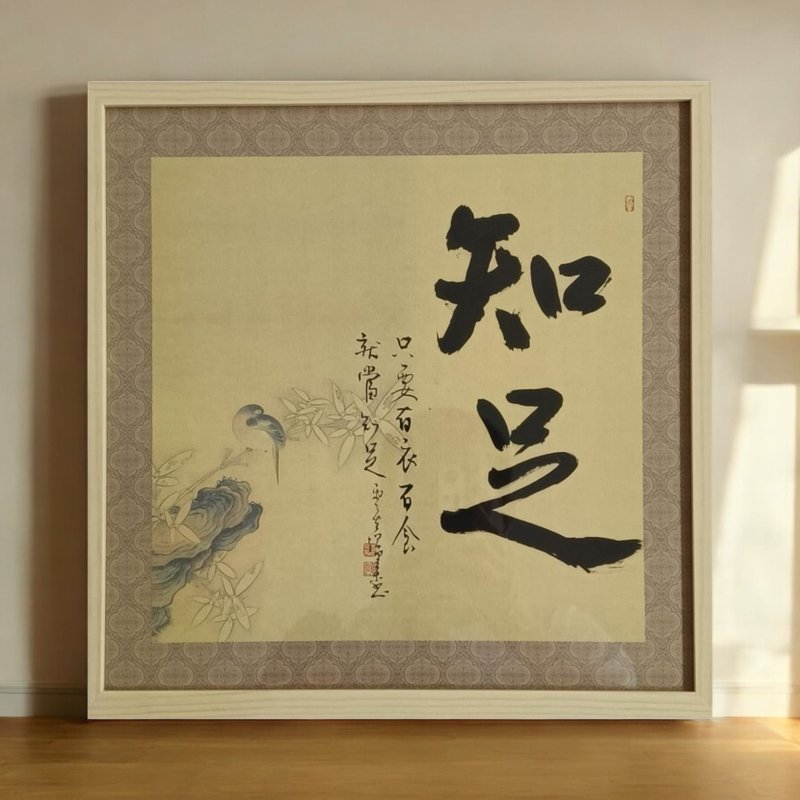 知足
只要有衣有食
就當知足